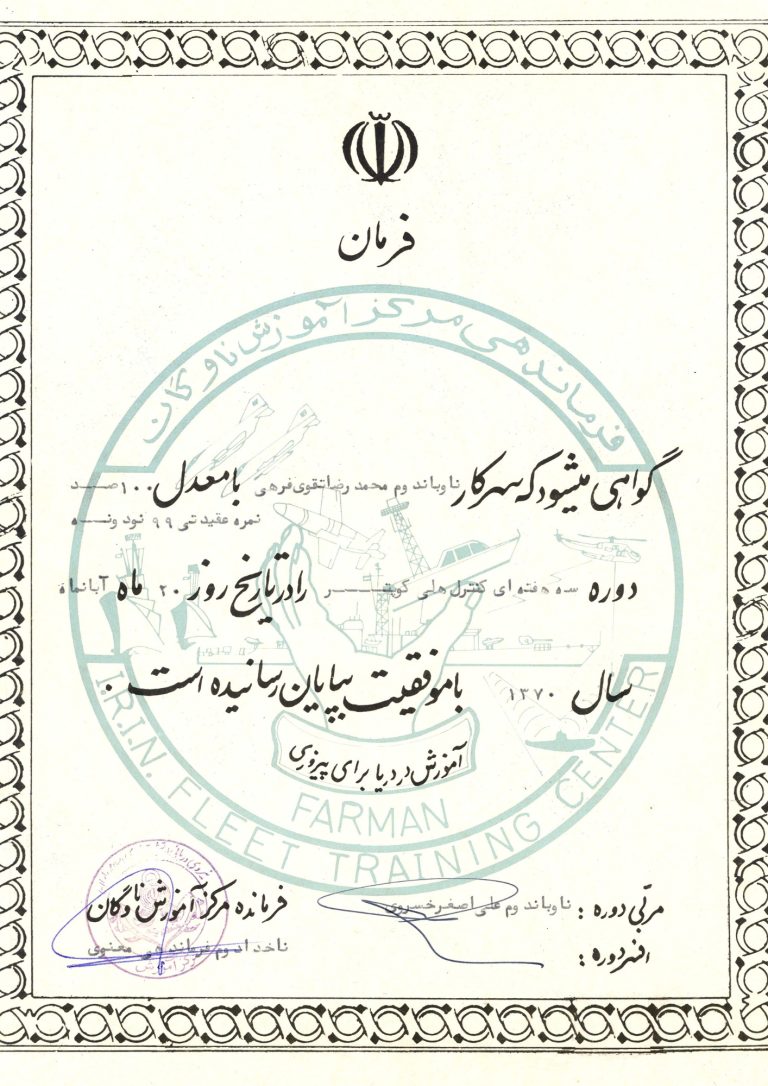 فرمان
فرماندهی مرکز آموزش ناوگان
گواهی میشود که سرکار ناوباندوم محمد رضا تقوی فرهی با معدل ۱۰۰ صد
نمره عقیدتی ۹۹ نود ونه
دوره سه هفته ای کنترل هلی کوپتر را در تاریخ روز ۲۰ ماه آبانماه
سال ۱۳۷۰ با موفقیت بپایان رسانیده است.
آموزش در دریا برای پیروزی
FARMAN
I.R.I.N. FLEET TRAINING CENTER
مربی دوره : ناوباندوم علی اصغر خسروی
افسر دوره :
فرمانده مرکز آموزش ناوگان
ناخدادوم فرماندهی معنوی